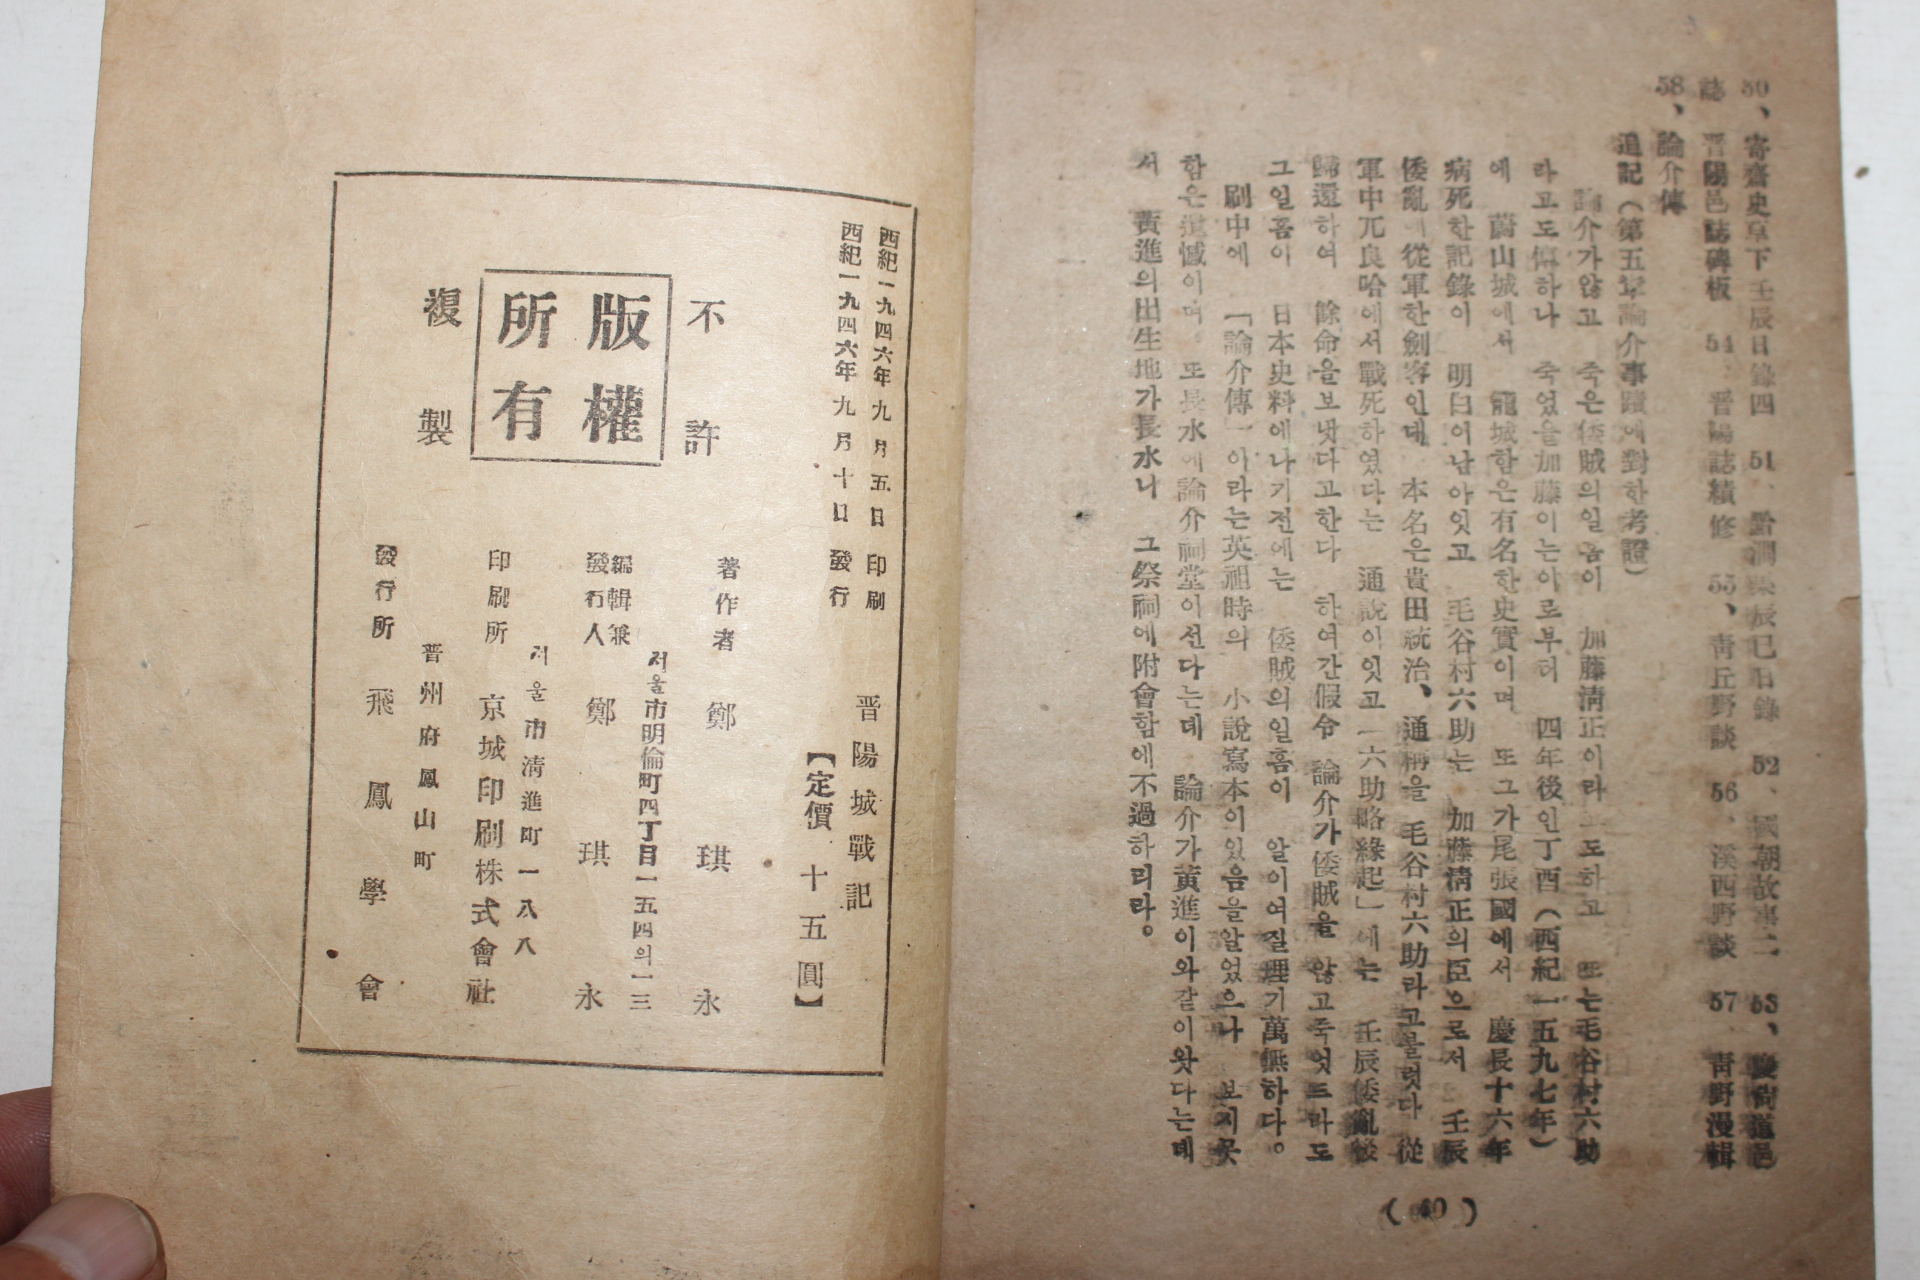 50、寄齋史草下壬辰日錄四 51、 52、國朝故事二 53、慶尙道邑
誌 晋陽邑誌碑板 54、晋陽誌續修 55、靑丘野談 56、溪西野談 57、靑野漫輯
58、論介傳
追記(第五章論介事蹟에對한考證)
論介가않고 죽은倭賊의일홈이 加藤淸正이라고도하고 또는毛谷村六助
라고도傳하나 죽었을加藤이는이로부터 四年後인丁酉(西紀一五九七年)
에 蔚山城에서 籠城함은有名한史實이며 또그가尾張國에서 慶長十六年
病死한記錄이 明白이남아잇고 毛谷村六助는 加藤淸正의臣으로서 壬辰
倭亂에從軍한劍客인데 本名은貴田統治、通稱을 毛谷村六助라고불럿다 從
軍中兀良哈에서戰死하였다는 通說이잇고「六助略緣起」에는 壬辰倭亂後
歸還하여 餘命을보냇다고한다 하여간假令 論介가倭賊을 않고죽엇드라도
그일홈이 日本史料에나기전에는 倭賊의일홈이 알이여질理가萬無하다。
刷中에 「論介傳」이라는英祖時의 小說寫本이있음을알었으나 보지못
함은遺憾이며。또長水에論介祠堂이선다는데 論介가黃進이와같이왓다는데
서 黃進의出生地가長水니 그祭祠에附會함에不過하리라。
(40)
西紀一九四六年九月五日 印刷
西紀一九四六年九月十日 發行
晋陽城戰記
【定價 十五圓】
不許
版權
所有
複製
著作者 鄭琪永
서울市明倫町四丁目一五四의一三
編輯兼
發行人 鄭琪永
서울市淸進町一八八
印刷所 京城印刷株式會社
晋州府鳳山町
發行所 飛鳳學會